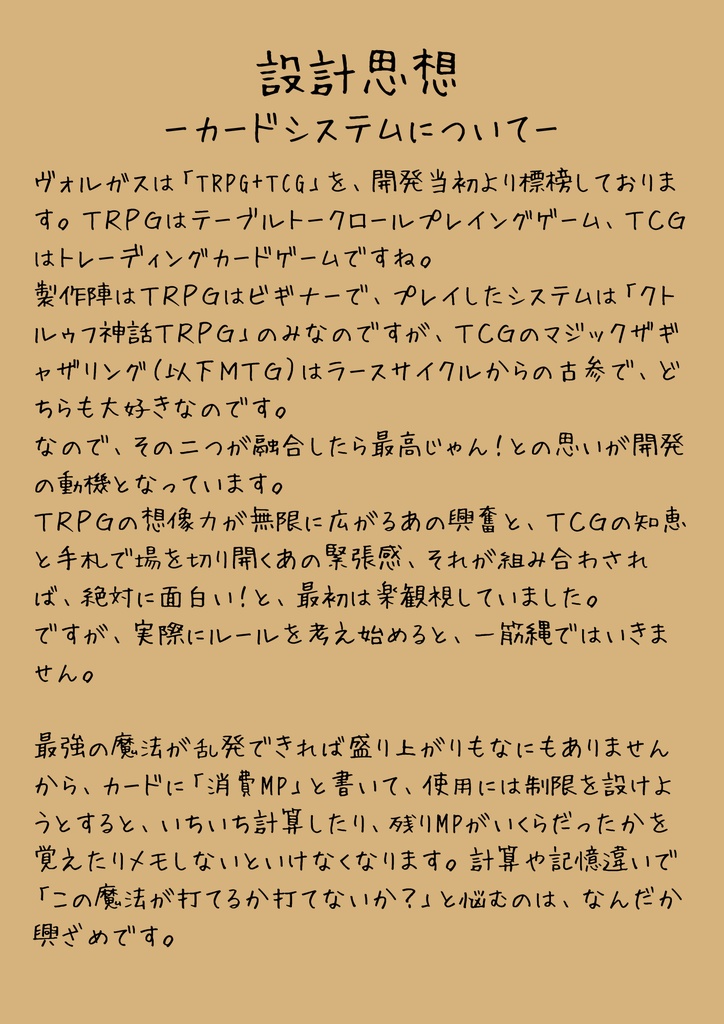 設計思想
ーカードシステムについてー
ヴォルガスは「TRPG+TCG」を、開発当初より標榜しておりま
す。TRPGはテーブルトークロールプレイングゲーム、TCG
はトレーディングカードゲームですね。
製作陣はTRPGはビギナーで、プレイしたシステムは「クト
ルゥフ神話TRPG」のみなのですが、TCGのマジックザギ
ャザリング(以下MTG)はラースサイクルからの古参で、ど
ちらも大好きなのです。
なので、その二つが融合したら最高じゃん！との思いが開発
の動機となっています。
TRPGの想像力が無限に広がるあの興奮と、TCGの知恵
と手札で場を切り開くあの緊張感、それが組み合わされ
ば、絶対に面白い！と、最初は楽観視していました。
ですが、実際にルールを考え始めると、一筋縄ではいきま
せん。
最強の魔法が乱発できれば盛り上がりもなにもありません
から、カードに「消費MP」と書いて、使用には制限を設けよ
うとすると、いちいち計算したり、残りMPがいくらだったかを
覚えたりメモしないといけなくなります。計算や記憶違いで
「この魔法が打てるか打てないか？」と悩むのは、なんだか
興ざめです。